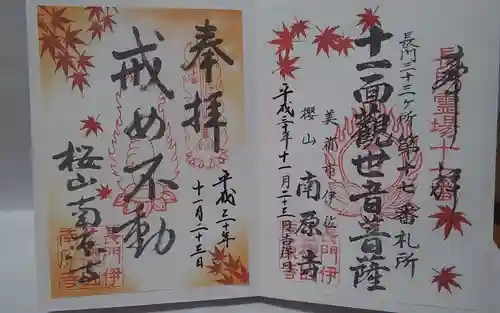 奉拝
長門三十三ケ所 第十七番札所
十一面観世音菩薩
美祢市伊佐
櫻山 南原寺
平成三十年十一月二十三日吉祥日
奉拝
平成三十年
十一月二十三日
戒め不動
桜山南原寺